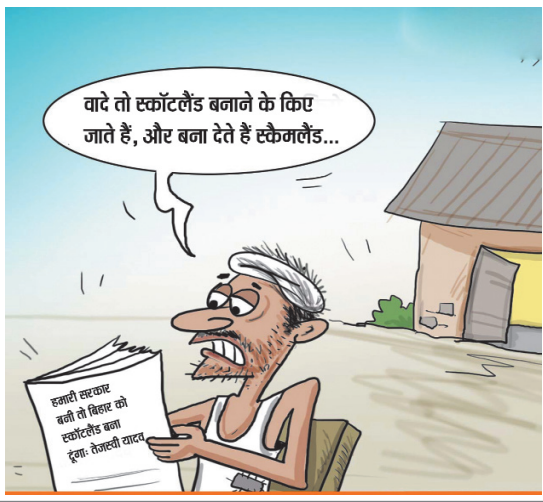 वादे तो स्कॉटलैंड बनाने के किए
जाते हैं, और बना देते हैं स्कैमलैंड...
हमारी सरकार
बनी तो बिहार को
स्कॉटलैंड बना
दूंगाः तेजस्वी यादव